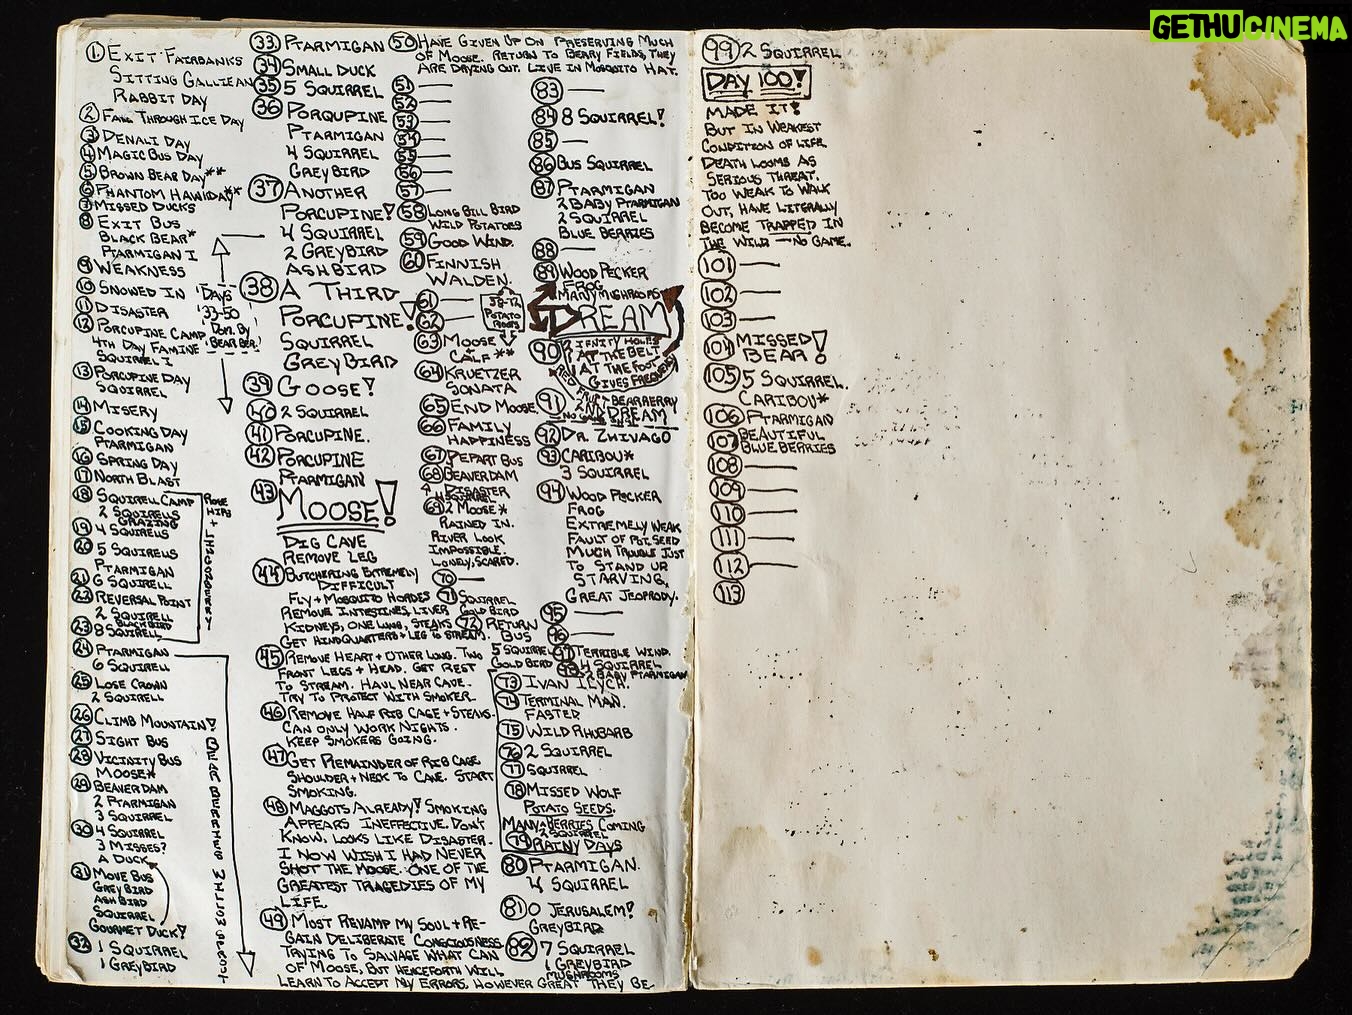 GETHUCINEMA
1. EXIT FAIRBANKS
SITTING GALLIEAN
RABBIT DAY
2 FALL THROUGH ICE DAY
3 DENALI DAY
4 MAGIC BUS DAY
5 BROWN BEAR DAY**
6 PHANTOM HAWKDAY**
7 MISSED DUCKS
8 EXIT BUS
BLACK BEAR*
PTARMIGAN 1
9 WEAKNESS
10 SNOWED IN
11 DISASTER
12 PORCUPINE CAMP
4TH DAY FAMINE
SQUIRREL 1
13 PORCUPINE DAY
SQUIRREL
14 MISERY
15 COOKING DAY
PTARMIGAN
16 SPRING DAY
17 NORTH BLAST
18 SQUIRELL CAMP
2 SQUIRELLS
GRAZING
19 4 SQUIRELLS
20 5 SQUIRELLS
PTARMIGAN
21 6 SQUIRELL
22 REVERSAL POINT
2 SQUIRELL
BLACKBIRD
23 8 SQUIRELL
ROSE HIPS + LINGONBERRY
24 PTARMIGAN
6 SQUIRELL
25 LOSE CROWN
2 SQUIRELL
26 CLIMB MOUNTAIN!
27 SIGHT BUS
28 VICINITY BUS
MOOSE*
29 BEAVERDAM
2 PTARMIGAN
3 SQUIRREL
30 4 SQUIRREL
3 MISSES?
A DUCK
31 MOVE BUS
GREYBIRD
ASHBIRD
SQUIRREL
GOURMET DUCK!
32 1 SQUIRREL
1 GREYBIRD
BEAR BERRIES
DAYS
33-50
DOM. BY
BEAR BER.
33. PTARMIGAN
34 SMALL DUCK
35 5 SQUIRREL
36 PORQUPINE
PTARMIGAN
4 SQUIRREL
GREYBIRD
37 ANOTHER
PORCUPINE!
4 SQUIRREL
2 GREYBIRD
ASHBIRD
38 A THIRD
PORCUPINE!
SQUIRREL
GREYBIRD
39 GOOSE!
40 2 SQUIRREL
41 PORCUPINE.
42 PORCUPINE
PTARMIGAN
43 MOOSE!
DIG CAVE
REMOVE LEG
44 BUTCHERING EXTREMELY
DIFFICULT
FLY + MOSQUITO HORDES
REMOVE INTESTINES, LIVER
KIDNEYS, ONE LUNG, STEAKS
GET HINDQUARTERS + LEG TO STREAM.
45 REMOVE HEART + OTHER LUNG. TWO
FRONT LEGS + HEAD. GET REST
TO STREAM. HAUL NEAR CAVE.
TRY TO PROTECT WITH SMOKER.
46 REMOVE HALF RIB CAGE + STEAKS.
CAN ONLY WORK NIGHTS.
KEEP SMOKERS GOING.
47 GET REMAINDER OF RIB CAGE
SHOULDER + NECK TO CAVE. START
SMOKING.
48 MAGGOTS ALREADY! SMOKING
APPEARS INEFFECTIVE. DON'T
KNOW, LOOKS LIKE DISASTER.
I NOW WISH I HAD NEVER
SHOT THE MOOSE. ONE OF THE
GREATEST TRAGEDIES OF MY
LIFE.
49 MOST REVAMP MY SOUL + RE-
GAIN DELIBERATE CONSCIOUSNESS.
TRYING TO SALVAGE WHAT CAN
OF MOOSE, BUT HENCEFORTH WILL
LEARN TO ACCEPT MY ERRORS, HOWEVER GREAT THEY BE
50 HAVE GIVEN UP ON PRESERVING MUCH
OF MOOSE. RETURN TO BERRY FIELDS, THEY
ARE DRYING OUT. LIVE IN MOSQUITO HAT.
51 —
52 —
53 —
54 —
55 —
56 —
57 —
58 LONG BILL BIRD
WILD POTATOES
59 GOOD WIND.
60 FINNISH
WALDEN.
61 —
62 —
POTATO
ROOTS
63 MOOSE
CALF **
64 KRUETZER
SONATA
65 END MOOSE
66 FAMILY
HAPPINESS
67 DEPART BUS
68 BEAVERDAM
DISASTER
4 SQUIRREL
69 2 MOOSE*
RAINED IN.
RIVER LOOK
IMPOSSIBLE.
LONELY, SCARED.
70 —
71 SQUIRREL
GOLD BIRD
72 RETURN
BUS
5 SQUIRREL
GOLD BIRD
73 IVAN ILYCH.
74 TERMINAL MAN.
FASTED
75 WILD RHUBARB
76 2 SQUIRREL
77 SQUIRREL
78 MISSED WOLF
POTATO SEEDS.
MANY BERRIES COMING
2 SQUIRREL
79 RAINY DAYS
80 PTARMIGAN.
4 SQUIRREL
81 O JERUSALEM!
GREYBIRD
82 7 SQUIRREL
1 GREYBIRD
MUSHROOMS
83 —
84 8 SQUIRREL!
85 —
86 BUS SQUIRREL
87 PTARMIGAN
2 BABY PTARMIGAN
2 SQUIRREL
BLUE BERRIES
88 —
89 WOOD PECKER
FROG
MANY MUSHROOMS
DREAM
90
AT THE BELT
AT THE FOOT
GIVES
BEARBERRY
91 2ND DREAM
92 DR. ZHIVAGO
93 CARIBOU*
3 SQUIRREL
94 WOOD PECKER
FROG
EXTREMELY WEAK
FAULT OF POT. SEED
MUCH TROUBLE JUST
TO STAND UP
STARVING.
GREAT JEOPRODY.
95 —
96 —
97 TERRIBLE WIND.
4 SQUIRREL
98 2 BABY PTARMIGAN
99 2 SQUIRREL
DAY 100!
MADE IT!
BUT IN WEAKEST
CONDITION OF LIFE.
DEATH LOOMS AS
SERIOUS THREAT.
TOO WEAK TO WALK
OUT, HAVE LITERALLY
BECOME TRAPPED IN
THE WILD — NO GAME.
101 —
102 —
103 —
104 MISSED
BEAR!
105 5 SQUIRREL.
CARIBOU*
106 PTARMIGAN
107 BEAUTIFUL
BLUE BERRIES
108 —
109 —
110 —
111 —
112 —
113